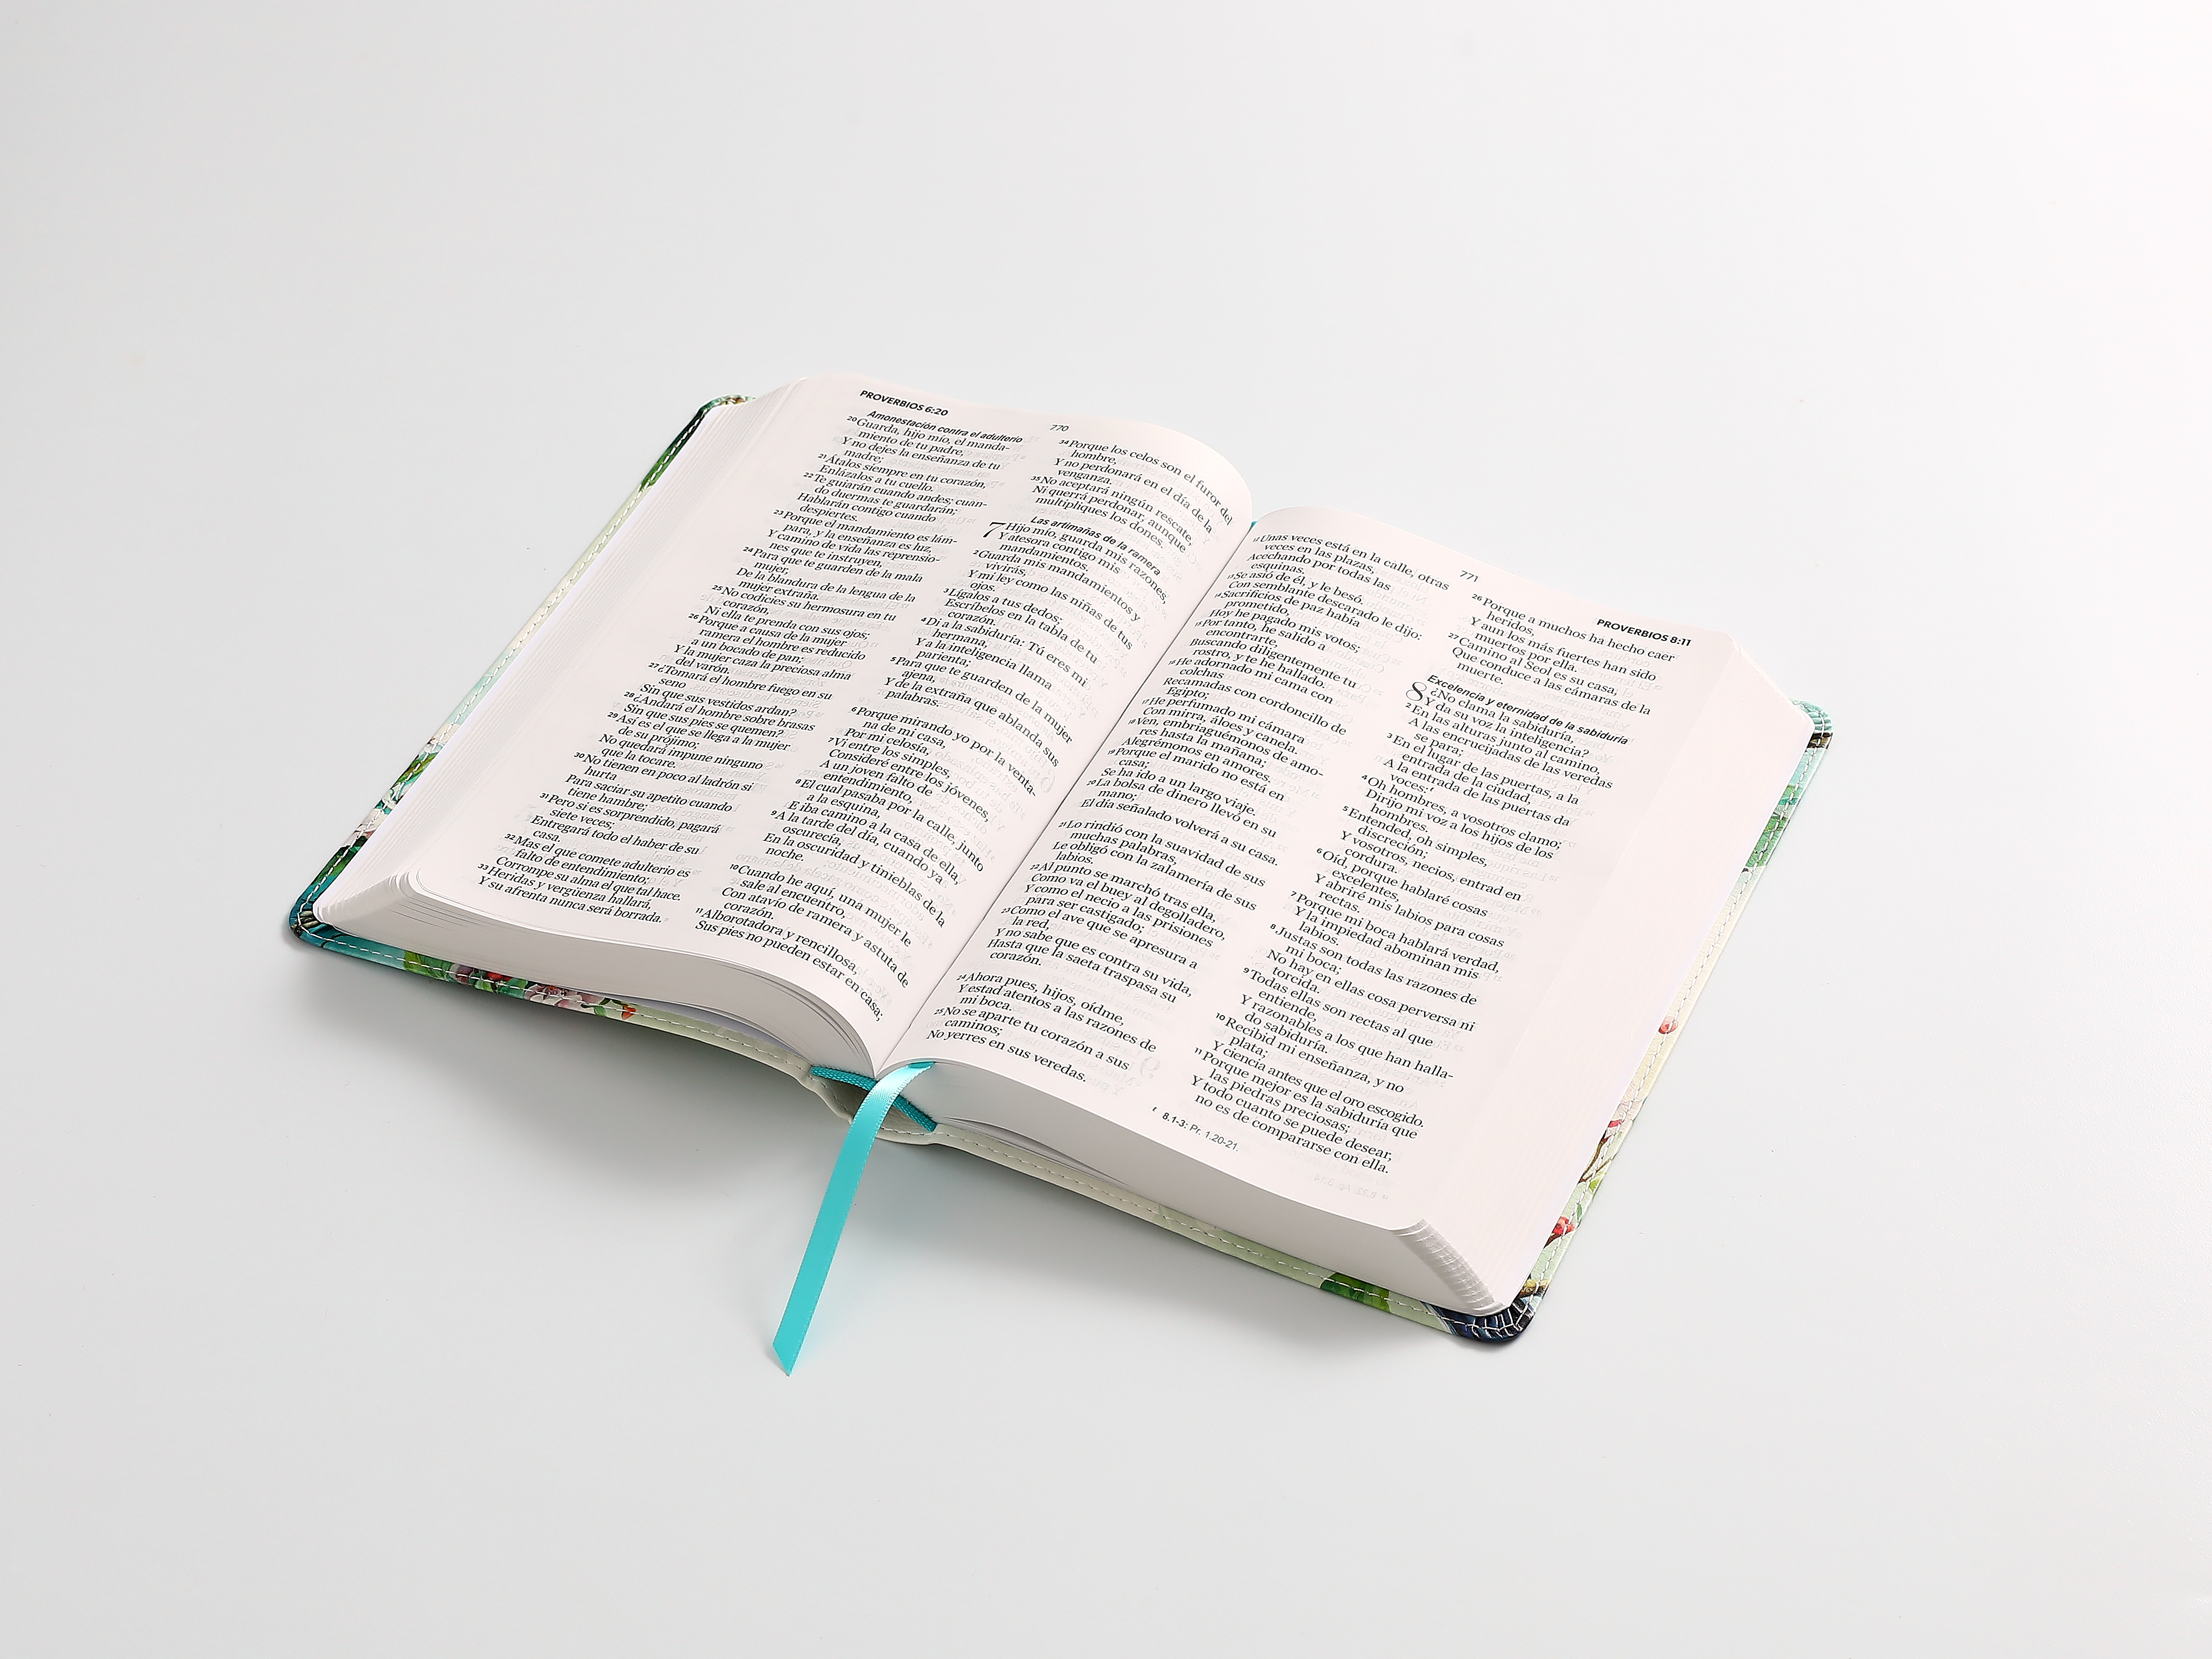 PROVERBIOS 6:20
770
Amonestación contra el adulterio
20Guarda, hijo mío, el manda-
miento de tu padre,
Y no dejes la enseñanza de tu
madre;
21Átalos siempre en tu corazón,
Enlázalos a tu cuello.
22Te guiarán cuando andes; cuan-
do duermas te guardarán;
Hablarán contigo cuando
despiertes.
23Porque el mandamiento es lám-
para, y la enseñanza es luz,
Y camino de vida las reprensio-
nes que te instruyen,
24Para que te guarden de la mala
mujer,
De la blandura de la lengua de la
mujer extraña.
25No codicies su hermosura en tu
corazón,
Ni ella te prenda con sus ojos;
26Porque a causa de la mujer
ramera el hombre es reducido
a un bocado de pan;
Y la mujer caza la preciosa alma
del varón.
27¿Tomará el hombre fuego en su
seno
Sin que sus vestidos ardan?
28¿Andará el hombre sobre brasas
Sin que sus pies se quemen?
29Así es el que se llega a la mujer
de su prójimo;
No quedará impune ninguno
que la tocare.
30No tienen en poco al ladrón si
hurta
Para saciar su apetito cuando
tiene hambre;
31Pero si es sorprendido, pagará
siete veces;
Entregará todo el haber de su
casa.
32Mas el que comete adulterio es
falto de entendimiento;
Corrompe su alma el que tal hace.
33Heridas y vergüenza hallará,
Y su afrenta nunca será borrada.
34Porque los celos son el furor del
hombre,
Y no perdonará en el día de la
venganza.
35No aceptará ningún rescate,
Ni querrá perdonar, aunque
multipliques los dones.
Las artimañas de la ramera
7 Hijo mío, guarda mis razones,
Y atesora contigo mis
mandamientos.
2Guarda mis mandamientos y
vivirás,
Y mi ley como las niñas de tus
ojos.
3Lígalos a tus dedos;
Escríbelos en la tabla de tu
corazón.
4Di a la sabiduría: Tú eres mi
hermana,
Y a la inteligencia llama
parienta;
5Para que te guarden de la mujer
ajena,
Y de la extraña que ablanda sus
palabras.
6Porque mirando yo por la venta-
na de mi casa,
Por mi celosía,
7Vi entre los simples,
Consideré entre los jóvenes,
A un joven falto de
entendimiento,
8El cual pasaba por la calle, junto
a la esquina,
E iba camino a la casa de ella,
9A la tarde del día, cuando ya
oscurecía,
En la oscuridad y tinieblas de la
noche.
10Cuando he aquí, una mujer le
sale al encuentro,
Con atavío de ramera y astuta de
corazón.
11Alborotadora y rencillosa,
Sus pies no pueden estar en casa;
771
PROVERBIOS 8:11
12Unas veces está en la calle, otras
veces en las plazas,
Acechando por todas las
esquinas.
13Se asió de él, y le besó.
Con semblante descarado le dijo:
14Sacrificios de paz había
prometido,
Hoy he pagado mis votos;
15Por tanto, he salido a
encontrarte,
Buscando diligentemente tu
rostro, y te he hallado.
16He adornado mi cama con
colchas
Recamadas con cordoncillo de
Egipto;
17He perfumado mi cámara
Con mirra, áloes y canela.
18Ven, embriaguémonos de amo-
res hasta la mañana;
Alegrémonos en amores.
19Porque el marido no está en
casa;
Se ha ido a un largo viaje.
20La bolsa de dinero llevó en su
mano;
El día señalado volverá a su casa.
21Lo rindió con la suavidad de sus
muchas palabras,
Le obligó con la zalamería de sus
labios.
22Al punto se marchó tras ella,
Como va el buey al degolladero,
Y como el necio a las prisiones
para ser castigado;
23Como el ave que se apresura a
la red,
Y no sabe que es contra su vida,
Hasta que la saeta traspasa su
corazón.
24Ahora pues, hijos, oídme,
Y estad atentos a las razones de
mi boca.
25No se aparte tu corazón a sus
caminos;
No yerres en sus veredas.
26Porque a muchos ha hecho caer
heridos,
Y aun los más fuertes han sido
muertos por ella.
27Camino al Seol es su casa,
Que conduce a las cámaras de la
muerte.
Excelencia y eternidad de la sabiduría
8 ¿No clama la sabiduría,
Y da su voz la inteligencia?
2En las alturas junto al camino,
A las encrucijadas de las veredas
se para;
3En el lugar de las puertas, a la
entrada de la ciudad,
A la entrada de las puertas da
voces:r
4Oh hombres, a vosotros clamo;
Dirijo mi voz a los hijos de los
hombres.
5Entended, oh simples,
discreción;
Y vosotros, necios, entrad en
cordura.
6Oíd, porque hablaré cosas
excelentes,
Y abriré mis labios para cosas
rectas.
7Porque mi boca hablará verdad,
Y la impiedad abominan mis
labios.
8Justas son todas las razones de
mi boca;
No hay en ellas cosa perversa ni
torcida.
9Todas ellas son rectas al que
entiende,
Y razonables a los que han halla-
do sabiduría.
10Recibid mi enseñanza, y no
plata;
Y ciencia antes que el oro escogido.
11Porque mejor es la sabiduría que
las piedras preciosas;
Y todo cuanto se puede desear,
no es de compararse con ella.
r 8.1-3: Pr. 1.20-21.